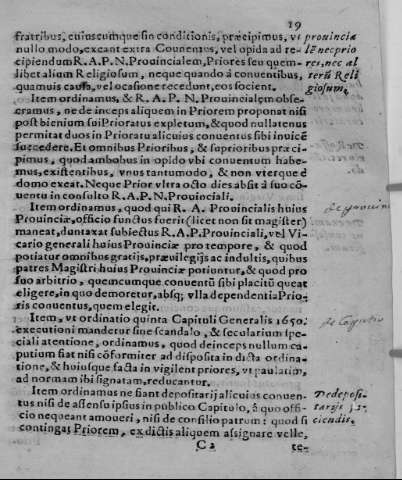 19
fratribus, cuiuscumque sin conditionis, præcipimus, vt
nullo modo, exeant extra Conuentus, vel opida ad re-
cipiendum R. A. P. N. Prouincialem, Priores seu quem-
libet alium Religiosum, neque quando á conuentibus,
quamuis causa, vel ocasione recedunt, eos socient.
prouincia
lẽ nec prio
res, nec al
terũ Reli
giosum,
Item ordinamus, & R. A. P. N. Prouincialẹm obse-
cramus, ne deinceps aliquem in Priorem proponat nisi
post bienium sui Prioratus expletum, & quod nullatenus
permitat duos in Prioratu alicuius conuentus sibi inuicẽ
succedere. Et omnibus Prioribus, & supprioribus præci-
pimus, quod ambobus in opido vbi conuentum habe-
mus, existentibus, vnus tantumodo, & non vterque è
domo exeat. Neque Prior vltra octo dies absit à suo cõ-
uentu in consulto R. A. P. N. Prouinciali.
Item ordinamus, quod qui R. A. Prouincialis huius
Prouinciæ, officio functus fuerit (licet non sit magister)
maneat, duntaxat subiectus R. A. P. Prouinciali, vel Vi-
cario generali huius Prouinciæ pro tempore, & quod
potiatur omnibus gratijs, præuilegijs ac indultis, quibus
patres Magistri huius Prouinciæ potiuntur, & quod pro
suo arbitrio, quemcumque conuentũ sibi placitũ queat
eligere, in quo demoretur, absq; vlla dependentia Prio-
ris conuentus, quem elegit.
Item, vt ordinatio quinta Capituli Generalis 1650.
executioni mandetur sine scandalo, & secularium spe-
ciali atentione, ordinamus, quod deinceps nullum ca-
putium fiat nisi cõformiter ad disposita in dicta ordina-
tione, & huiusque facta in vigilent priores, vt paulatim,
ad normam ibi signatam, reducantur.
Item ordinamus ne fiant depositarij alicuius conuen-
tus nisi de assensu ipsius in publico Capitulo, à quo offi-
cio nequeant amoueri, nisi de consilio patrum: quod si
contingas Priorem, ex dictis aliquem assignare velle,
De deposi-
tarijs
ciendis.
C 2
te-